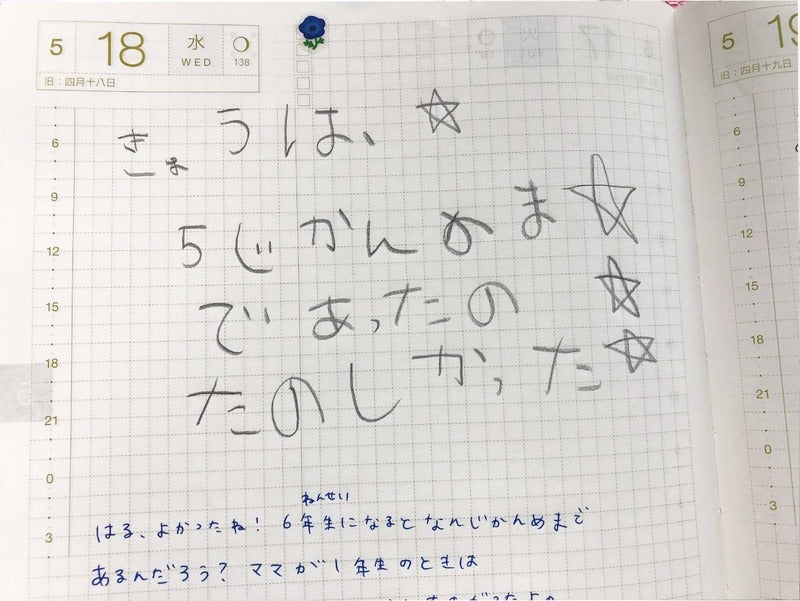 5 18 水 WED 138
旧：四月十八日
6
9
12
15
18
21
0
3
きょうは、☆
5じかんめま☆
であったの ☆
たのしかった☆
ねんせい
はる、よかったね! 6年生になるとなんじかんめまで
あるんだろう? ママが1年生のときは
5
旧：四月十九日
6
9
12
15
18
21
0
3